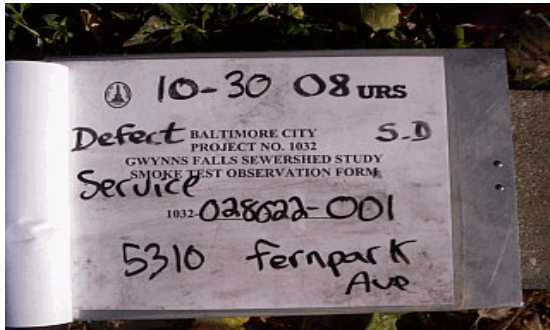 10-30 08 URS
Defect BALTIMORE CITY S-D
PROJECT NO. 1032
GWYNNS FALLS SEWERSHED STUDY
Service SMOKE TEST OBSERVATION FORM
1032-028622-001
5310 fernpark
Ave